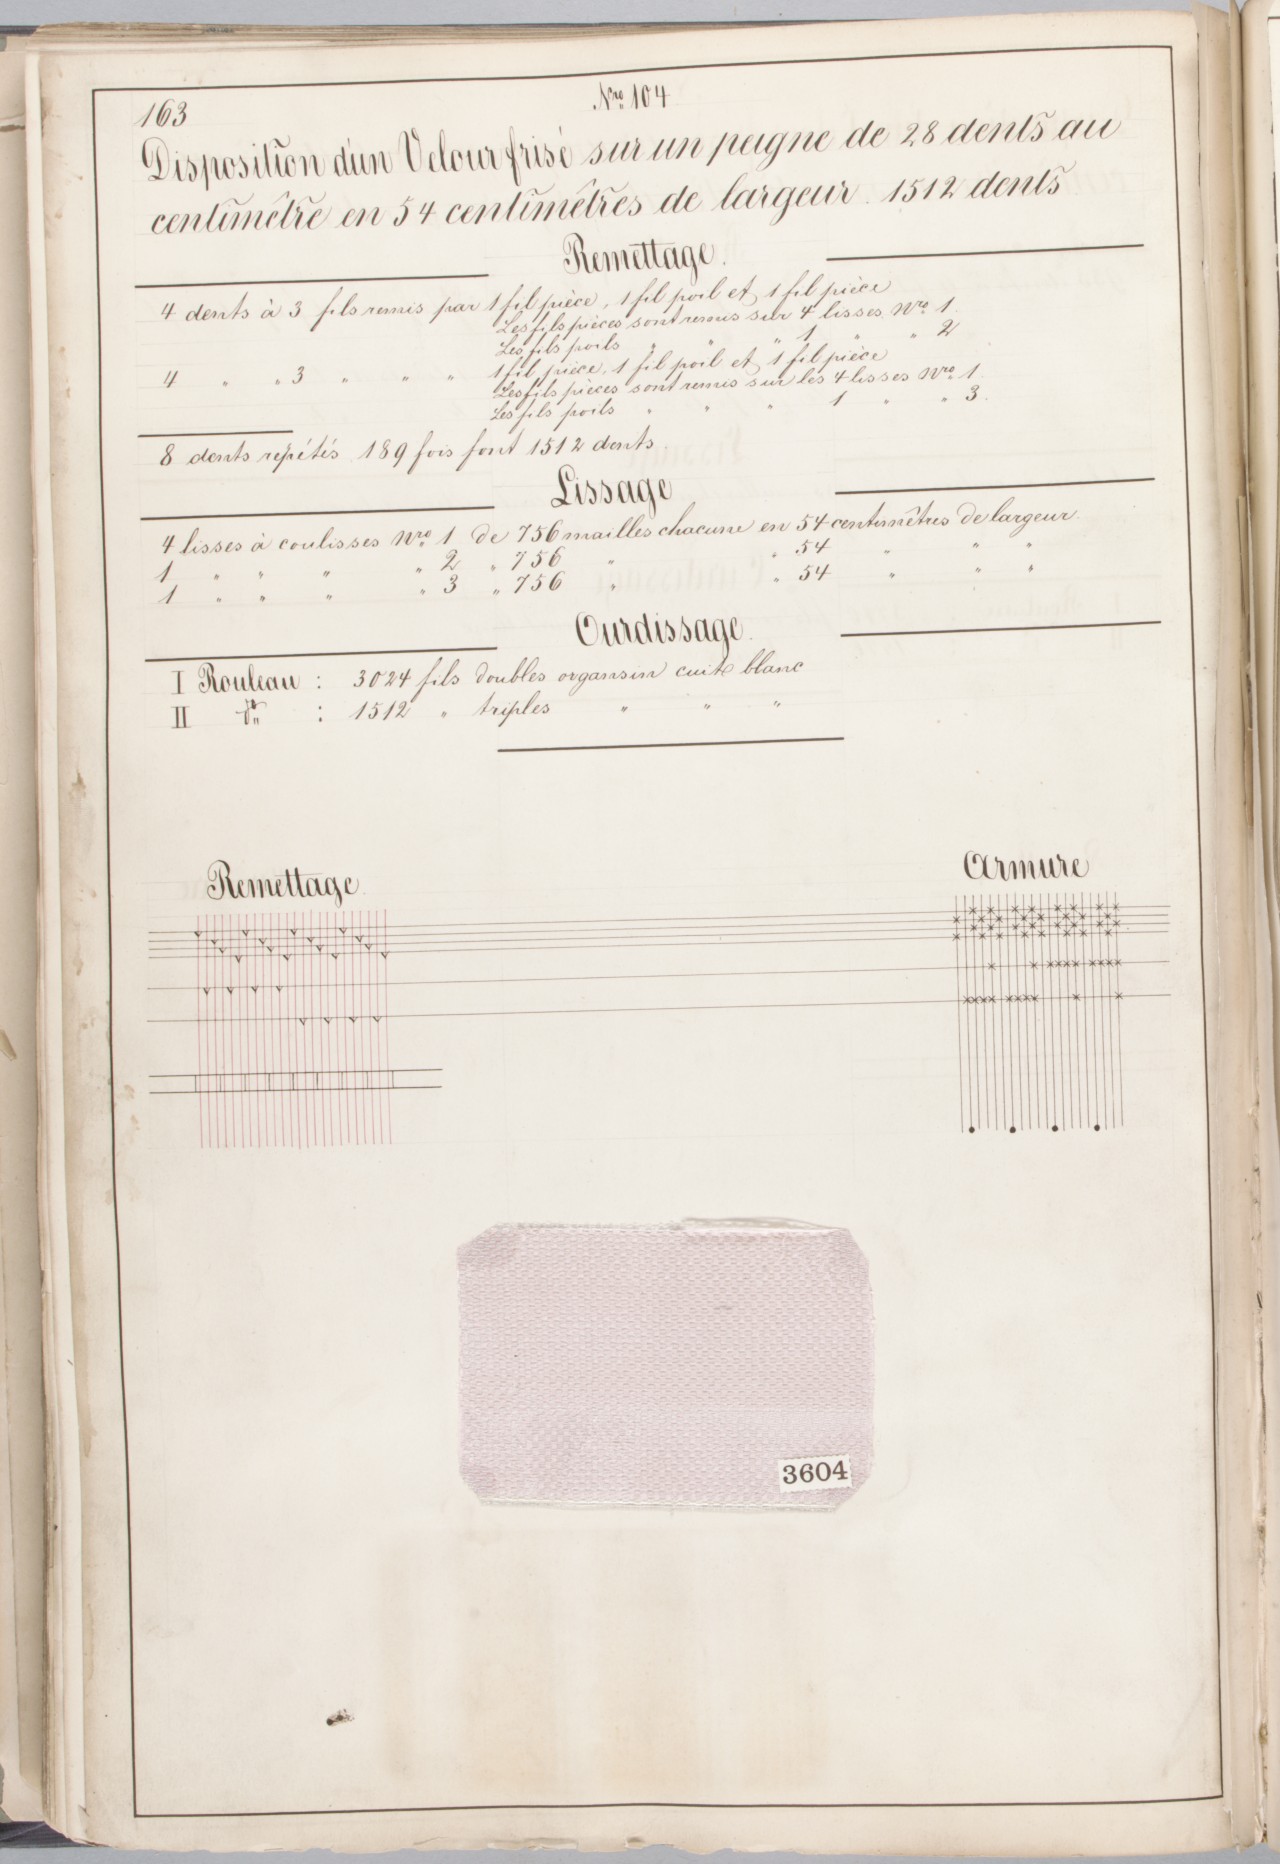 163
Nro. 104
Disposition d'un Velour frisé sur un peigne de 28 dents au
centimêtre en 54 centimêtres de largeur. 1512 dents
Remettage.
4 dents à 3 fils remis par 1 fil pièce, 1 fil poil et 1 fil pièce
Les fils pièces sont remis sur 4 lisses Nro. 1.
Les fils poils " " " 1 " " 2
4 " " 3 " " " 1 fil pièce, 1 fil poil et 1 fil pièce
Les fils pièces sont remis sur les 4 lisses Nro. 1.
Les fils poils " " " 1 " " 3.
8 dents repétés 189 fois font 1512 dents.
Lissage
4 lisses à coulisses Nro. 1 de 756 mailles chacune en 54 centimêtres de largeur.
1 " " " " 2 " 756 " " 54 " " "
1 " " " " 3 " 756 " " 54 " " "
Ourdissage.
I Rouleau : 3024 fils doubles organsin cuit blanc
II do. : 1512 " triples " " "
Remettage.
Armure
3604